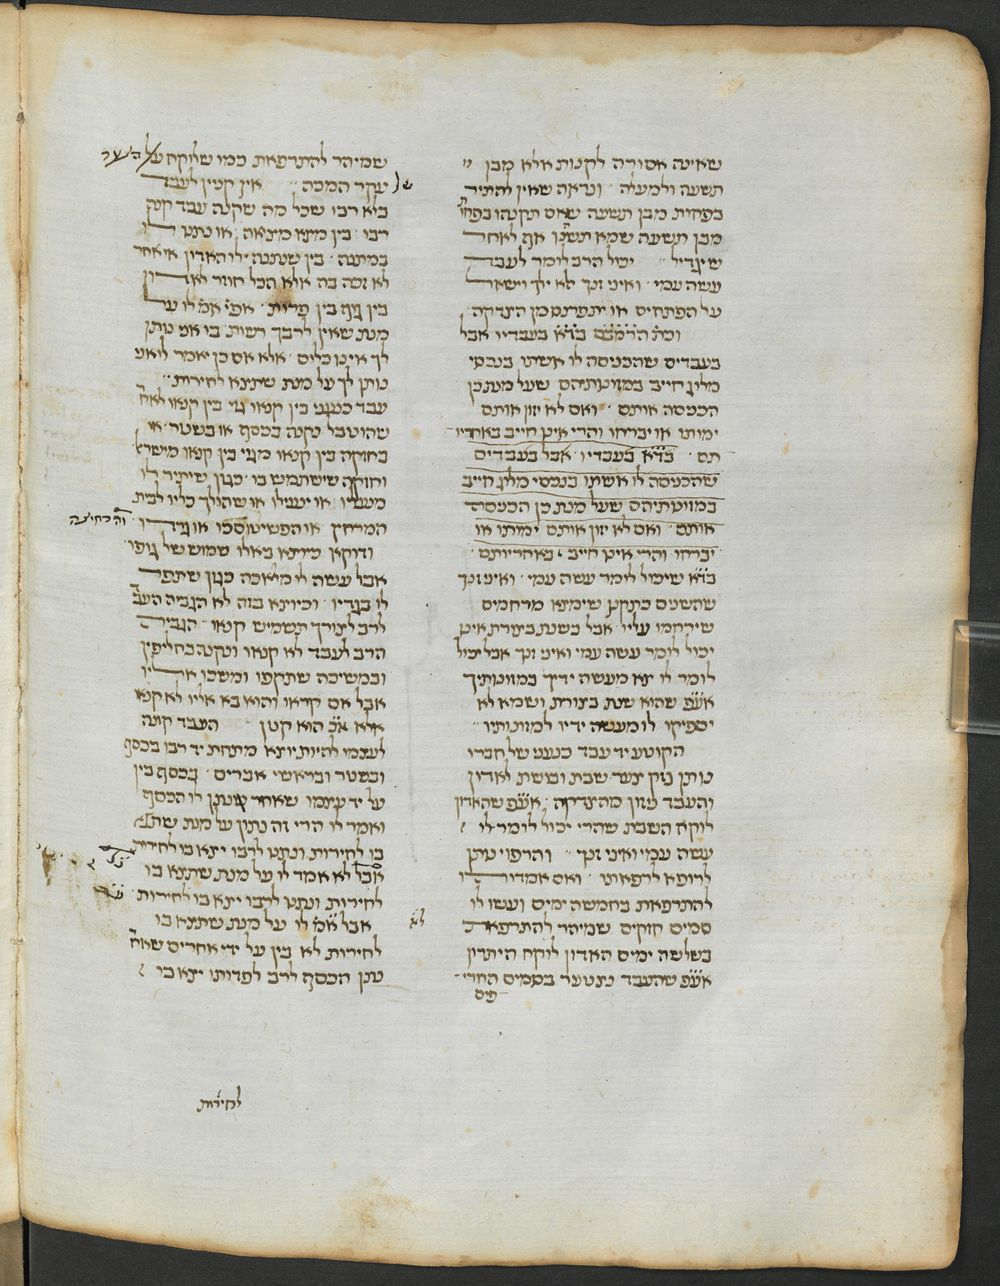 שאינה אסורה לקנות אלא מבן
תשעה ולמעלה ׳ ונראה שאין להתיר
בפחות מבן תשעה שאם תקנהו בפחו׳
מבן תשעה שמא תשהנו אף לאחר
שיגדיל ׳׳ יכול הרב לומר לעבד
עשה עמי ׳ ואיני זנך ילא ילך וישאל
על הפתחים או יתפרנס מן הצדקה
ומה הדברים בד״א בעבדיו אבל
בעבדים שהכניסה לו אשתו בנכסי
מלוג חייב במזונותיהם שעל מנת כן
הכניסה אותם ׳ ואם לא יזון אותם
ימותו או יברחו והרי אינו חייב באחריו
תם ׳ בד״א בעבדיו אבל בעבדים
שהכניסה לו אשתו בנכסי מלוג חייב
במזונותיהם שעל מנת כן הכניסה
אותם ׳׳ ואם לא יזון אותם ימותו או
יברחו והרי אינו חייב באחריותם ׳
בד״א שיכול לומר עשה עמי ׳ ואיני זנך
שהשנים כתקנן שימצא מרחמים
שירחמו עליו אבל בשנת בצורת אינו
יכול לומר עשה עמי ואיני זנך אבל יכול
לומר לו צא מעשה ידיך במזונותיך
אע״פ שהוא שנת בצורת ושמא לא
יספיקו לו מעשה ידיו למזונותיו ׳׳
הקוטע יד עבד כנעני של חברו
נותן נזק וצער שבת ובושת לאדון
והעבד נזון מהצדקה ׳ אע״פ שהאדון
לוקח השבת שהרי יכול לומר לו
עשה עמי ואיני זנך ׳׳ והרפוי נותן
לרופא לרפאותו ׳ ואם אמדוהו
להתרפאת בחמשה ימים ועשו לו
סמים חזקים שמיהר להתרפאת
בשלשה ימים האדון לוקח היתרון
אע״פ שהעבד נצטער בסמים החרי
פים
שמיהר להתרפאת כמו שלוקח על הצער
של
עקר המכה ׳׳ אין קנין לעבד
בלא רבו שכל מה שקנה עבד קנה
רבו ׳ בין מצא מציאה או נתנו לו
במתנה ׳ בין שנתנה לו האדון או אחר
לא זכה בה אלא הכל חוזר לאדון
בין גוף בין פירות ׳ אפי׳ אמ׳ לו על
מנת שאין לרבך רשות בו אני נותן
לך אינו כלום ׳ אלא אם כן יאמר לו אני
נותן לך על מנת שתצא לחירות ׳׳
עבד כנעני בין קנאו גוי בין קנאו לאח׳
שהוטבל נקנה בכסף או בשטר או
בחזקה בין קנאו מגוי בין קנאו מישרא׳
וחזקה שישתמש בו ׳ כגון שיתיר לו
מנעליו ׳ או ינעילו או שהוליך כליו לבית
המרחץ ׳ או הפשיטו סכו או גררו
והרחיצה
ודוקא כיוצא באלו שמוש של גופו ׳
אבל עשה לו מלאכה כגון שתפר
לו בגדיו ׳ וכיוצא בזה לא הגביה העב׳
לרב לצורך תשמיש קנאו ׳׳ הגביה
הרב לעבד לא קנאו ונקנה בחליפין
ובמשיכה שתקפו ומשכו אליו
אבל אם קראו והוא בא אליו לא קנאו
אלא א״כ הוא קטן ׳׳ העבד קונה
לעצמו להיות יוצא מתחת יד רבו בכסף
ובשטר ובראשי אברים ׳ בכסף בין
על יד עצמו שאחר נתן לו הכסף
ואמר לו הרי זה נתון על מנת שתצא
בו לחירות ונתנו לרבו יצא בו לחירות
אבל לא אמר לו על מנת שתצא בו
לחירות ונתנו לרבו יצא בו לחירות ׳
לא
אבל אמ׳ לו על מנת שתצא בו
לחירות לא בין על ידי אחרים שאח׳
נתן הכסף לרב לפדותו יצא בו
לחירות